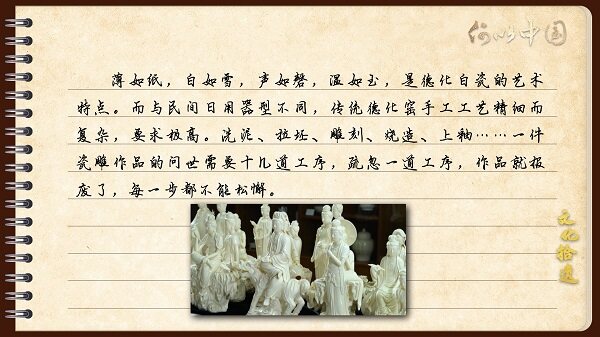 何以中国
薄如纸，白如雪，声如磬，温如玉，是德化白瓷的艺术
特点。而与民间日用器型不同，传统德化窑手工工艺精细而
复杂，要求极高。洗泥、拉坯、雕刻、烧造、上釉……一件
瓷雕作品的问世需要十几道工序，疏忽一道工序，作品就报
废了，每一步都不能松懈。
文化拾遗